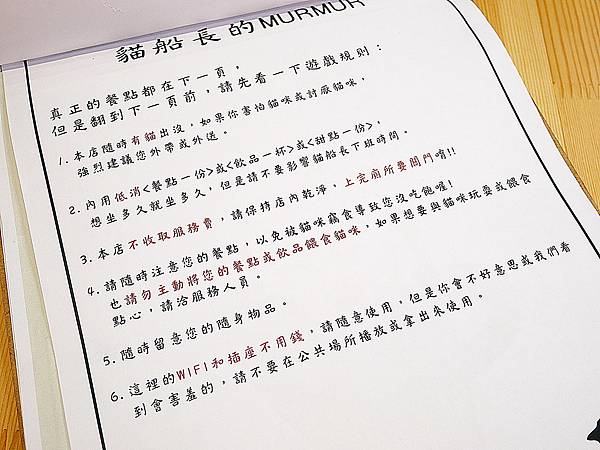 貓船長的MURMUR
真正的餐點都在下一頁，
但是翻到下一頁前，請先看一下遊戲規則：
1. 本店隨時有貓出沒，如果你害怕貓咪或討厭貓咪，
強烈建議您外帶或外送。
2. 內用低消<餐點一份>或<飲品一杯>或<甜點一份>，
想坐多久就坐多久，但是請不要影響貓船長下班時間。
3. 本店不收取服務費，請保持店內乾淨，上完廁所要關門唷!!
4. 請隨時注意您的餐點，以免被貓咪竊食導致您沒吃飽喔!
也請勿主動將您的餐點或飲品餵食貓咪，如果想要與貓咪玩耍或餵食
點心，請洽服務人員。
5. 隨時留意您的隨身物品。
6. 這裡的WIFI和插座不用錢，請隨意使用，但是你會不好意思或我們看
到會害羞的，請不要在公共場所播放或拿出來使用。